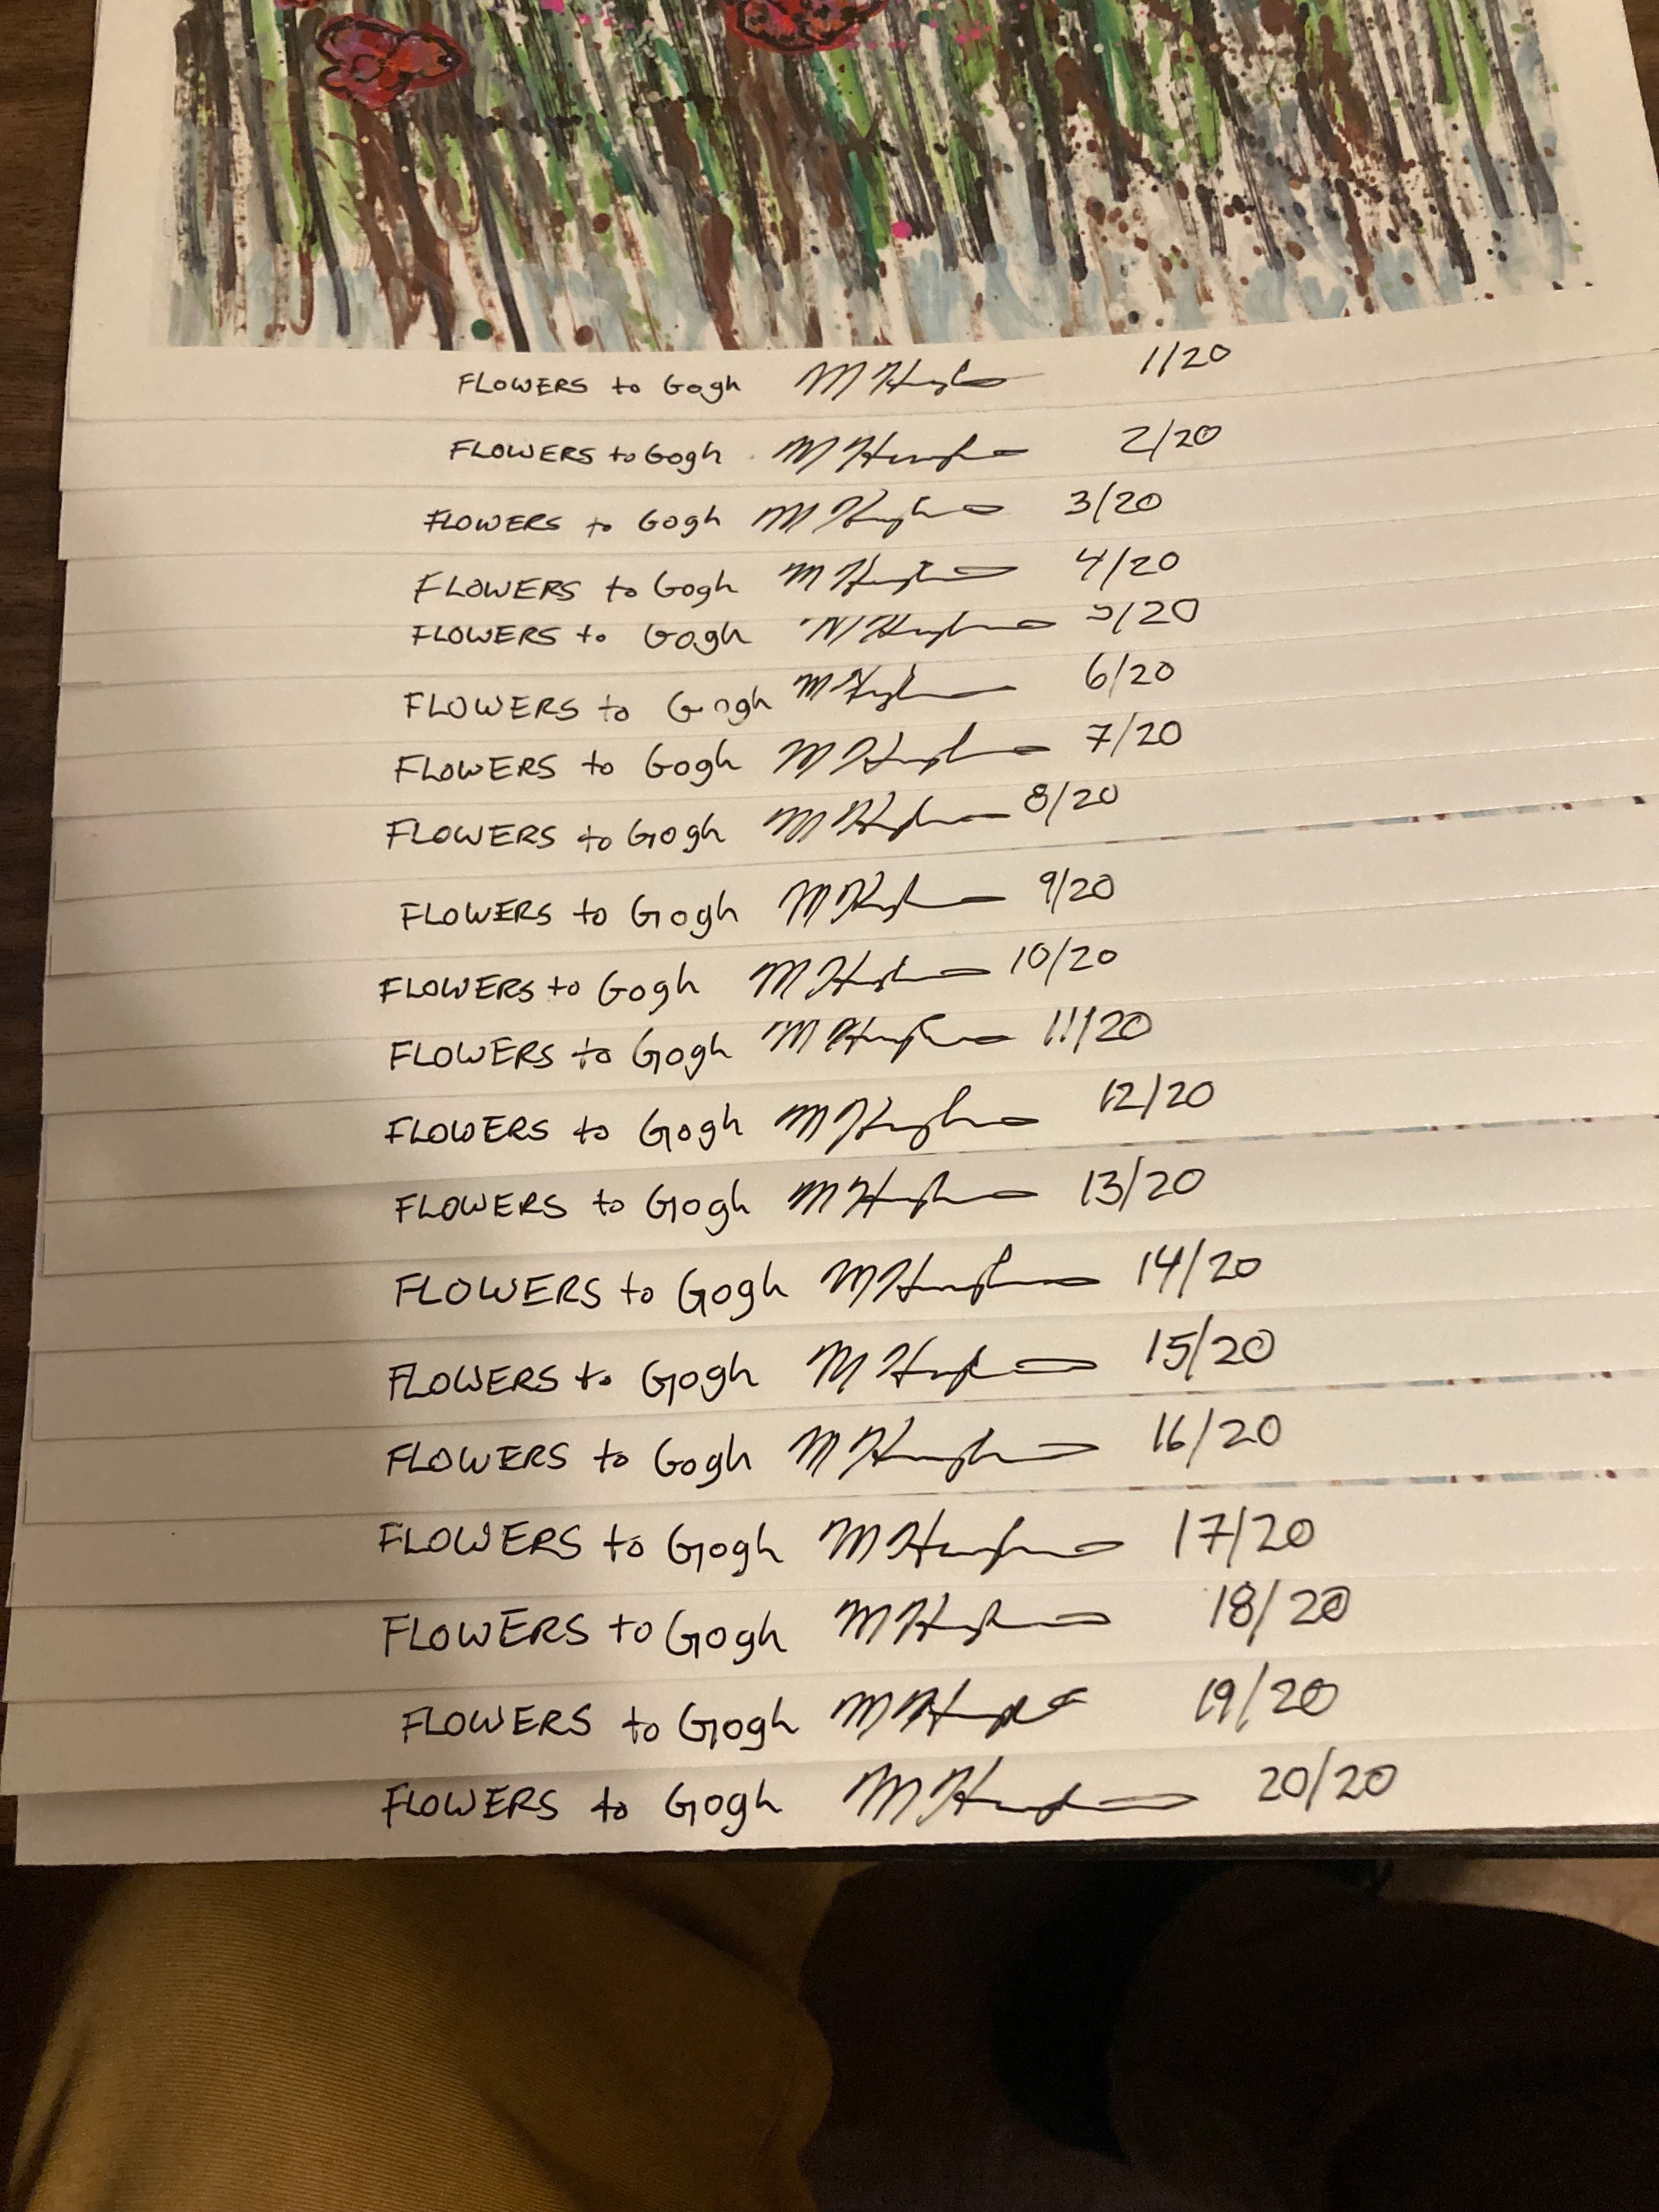 FLOWERS to Gogh M Hughes 1/20
FLOWERS to Gogh M Hughes 2/20
FLOWERS to Gogh M Hughes 3/20
FLOWERS to Gogh M Hughes 4/20
FLOWERS to Gogh M Hughes 5/20
FLOWERS to Gogh M Hughes 6/20
FLOWERS to Gogh M Hughes 7/20
FLOWERS to Gogh M Hughes 8/20
FLOWERS to Gogh M Hughes 9/20
FLOWERS to Gogh M Hughes 10/20
FLOWERS to Gogh M Hughes 11/20
FLOWERS to Gogh M Hughes 12/20
FLOWERS to Gogh M Hughes 13/20
FLOWERS to Gogh M Hughes 14/20
FLOWERS to Gogh M Hughes 15/20
FLOWERS to Gogh M Hughes 16/20
FLOWERS to Gogh M Hughes 17/20
FLOWERS to Gogh M Hughes 18/20
FLOWERS to Gogh M Hughes 19/20
FLOWERS to Gogh M Hughes 20/20